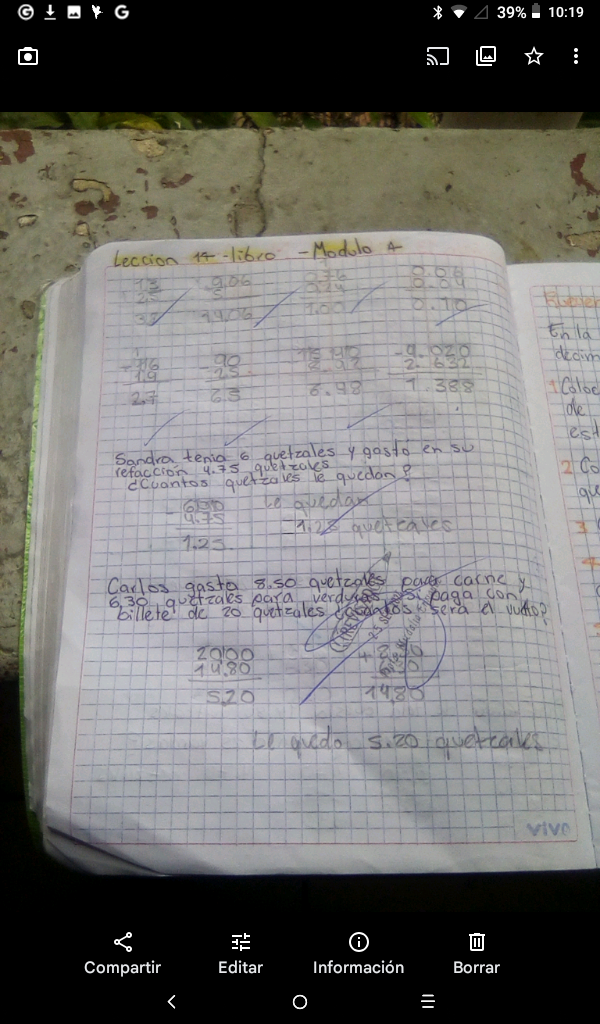 39% 10:19
Leccion 14 - libro - Modulo 4
13 9.06 0.76 0.06
25 5 0.24 0.04
14.06 1.00 0.10
- 46 - 90 15.40 - 4.020
19 25 8.92 2.632
27 65 6.48 1.388
Sandra tenia 6 quetzales y gastó en su
refacción 4.75 quetzales
¿Cuantos quetzales le quedan?
- 6.00 le quedan
4.75 1.25 quetzales
1.25
Carlos gasto 8.50 quetzales para carne y
6.30 quetzales para verduras si paga con
billete de 20 quetzales ¿cuantos será el vuelto?
20.00 +
14.80
5.20 14.80
Le quedo 5.20 quetzales
VIVO
En la
decim
1 Coloc
de
est
2 Co
qu
3
4
Compartir Editar Información Borrar